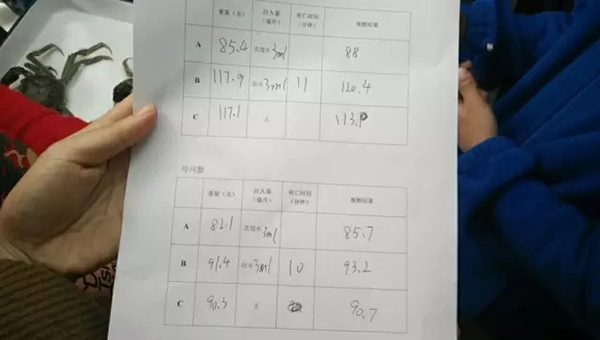 重量（克） 注入量（毫升） 死亡时间（分钟） 观察结果
A 85.4 3ml 88
B 117.9 3ml 11 120.4
C 117.1 无 113.
重量（克） 注入量（毫升） 死亡时间（分钟） 观察结果
A 82.1 3ml 85.7
B 91.4 3ml 10 93.2
C 90.3 无 90.7